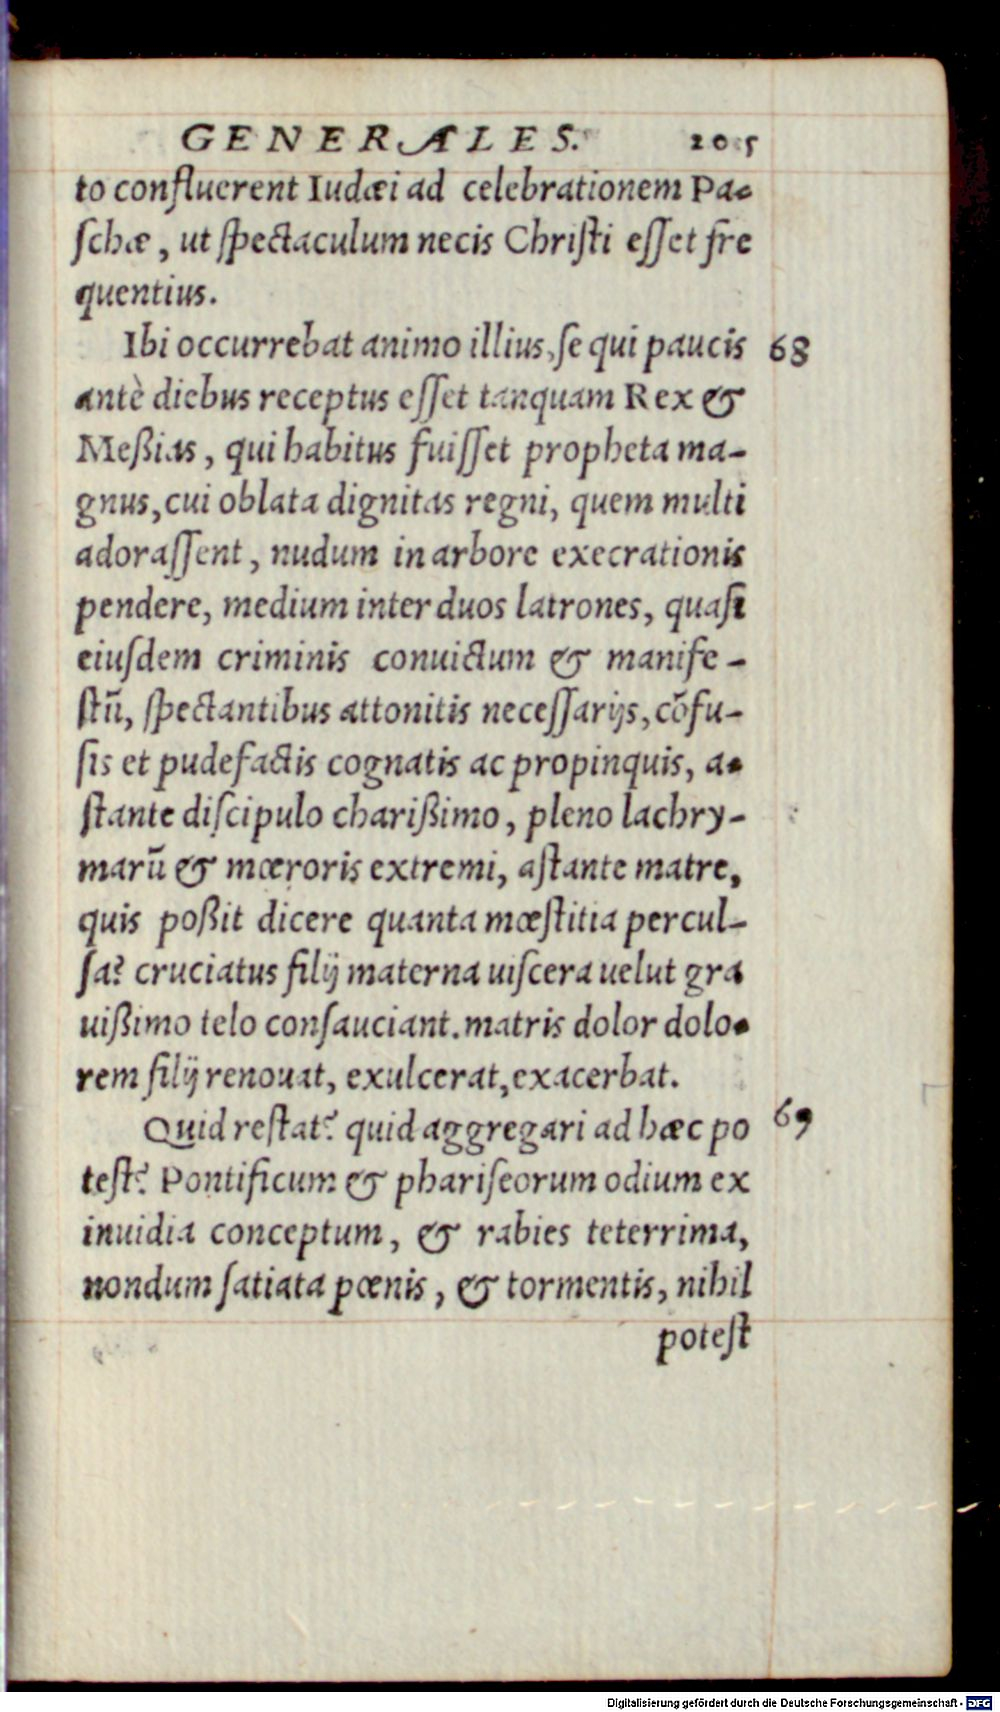 GENERALES. 205
to confluerent Iudæi ad celebrationem Pa-
ſchæ, ut ſpectaculum necis Chriſti eſſet fre
quentius.
Ibi occurrebat animo illius, ſe qui paucis 68
antè diebus receptus eſſet tanquam Rex &
Meßias, qui habitus fuiſſet propheta ma-
gnus, cui oblata dignitas regni, quem multi
adoraſſent, nudum in arbore execrationis
pendere, medium inter duos latrones, quaſi
eiuſdem criminis conuictum & manife-
ſtũ, ſpectantibus attonitis neceſſarijs, cõfu-
ſis et pudefactis cognatis ac propinquis, a-
ſtante diſcipulo charißimo, pleno lachry-
marũ & mœroris extremi, aſtante matre,
quis poßit dicere quanta mœſtitia percul-
ſa? cruciatus filij materna uiſcera uelut gra
uißimo telo conſauciant. matris dolor dolo-
rem filij renouat, exulcerat, exacerbat.
Quid reſtat? quid aggregari ad hæc po 69
teſt? Pontificum & phariſeorum odium ex
inuidia conceptum, & rabies teterrima,
nondum ſatiata pœnis, & tormentis, nihil
poteſt
Digitalisierung gefördert durch die Deutsche Forschungsgemeinschaft - DFG